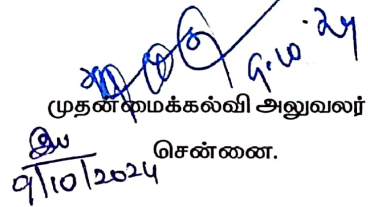 9.10.24
முதன்மைக்கல்வி அலுவலர்
சென்னை.
9/10/2024